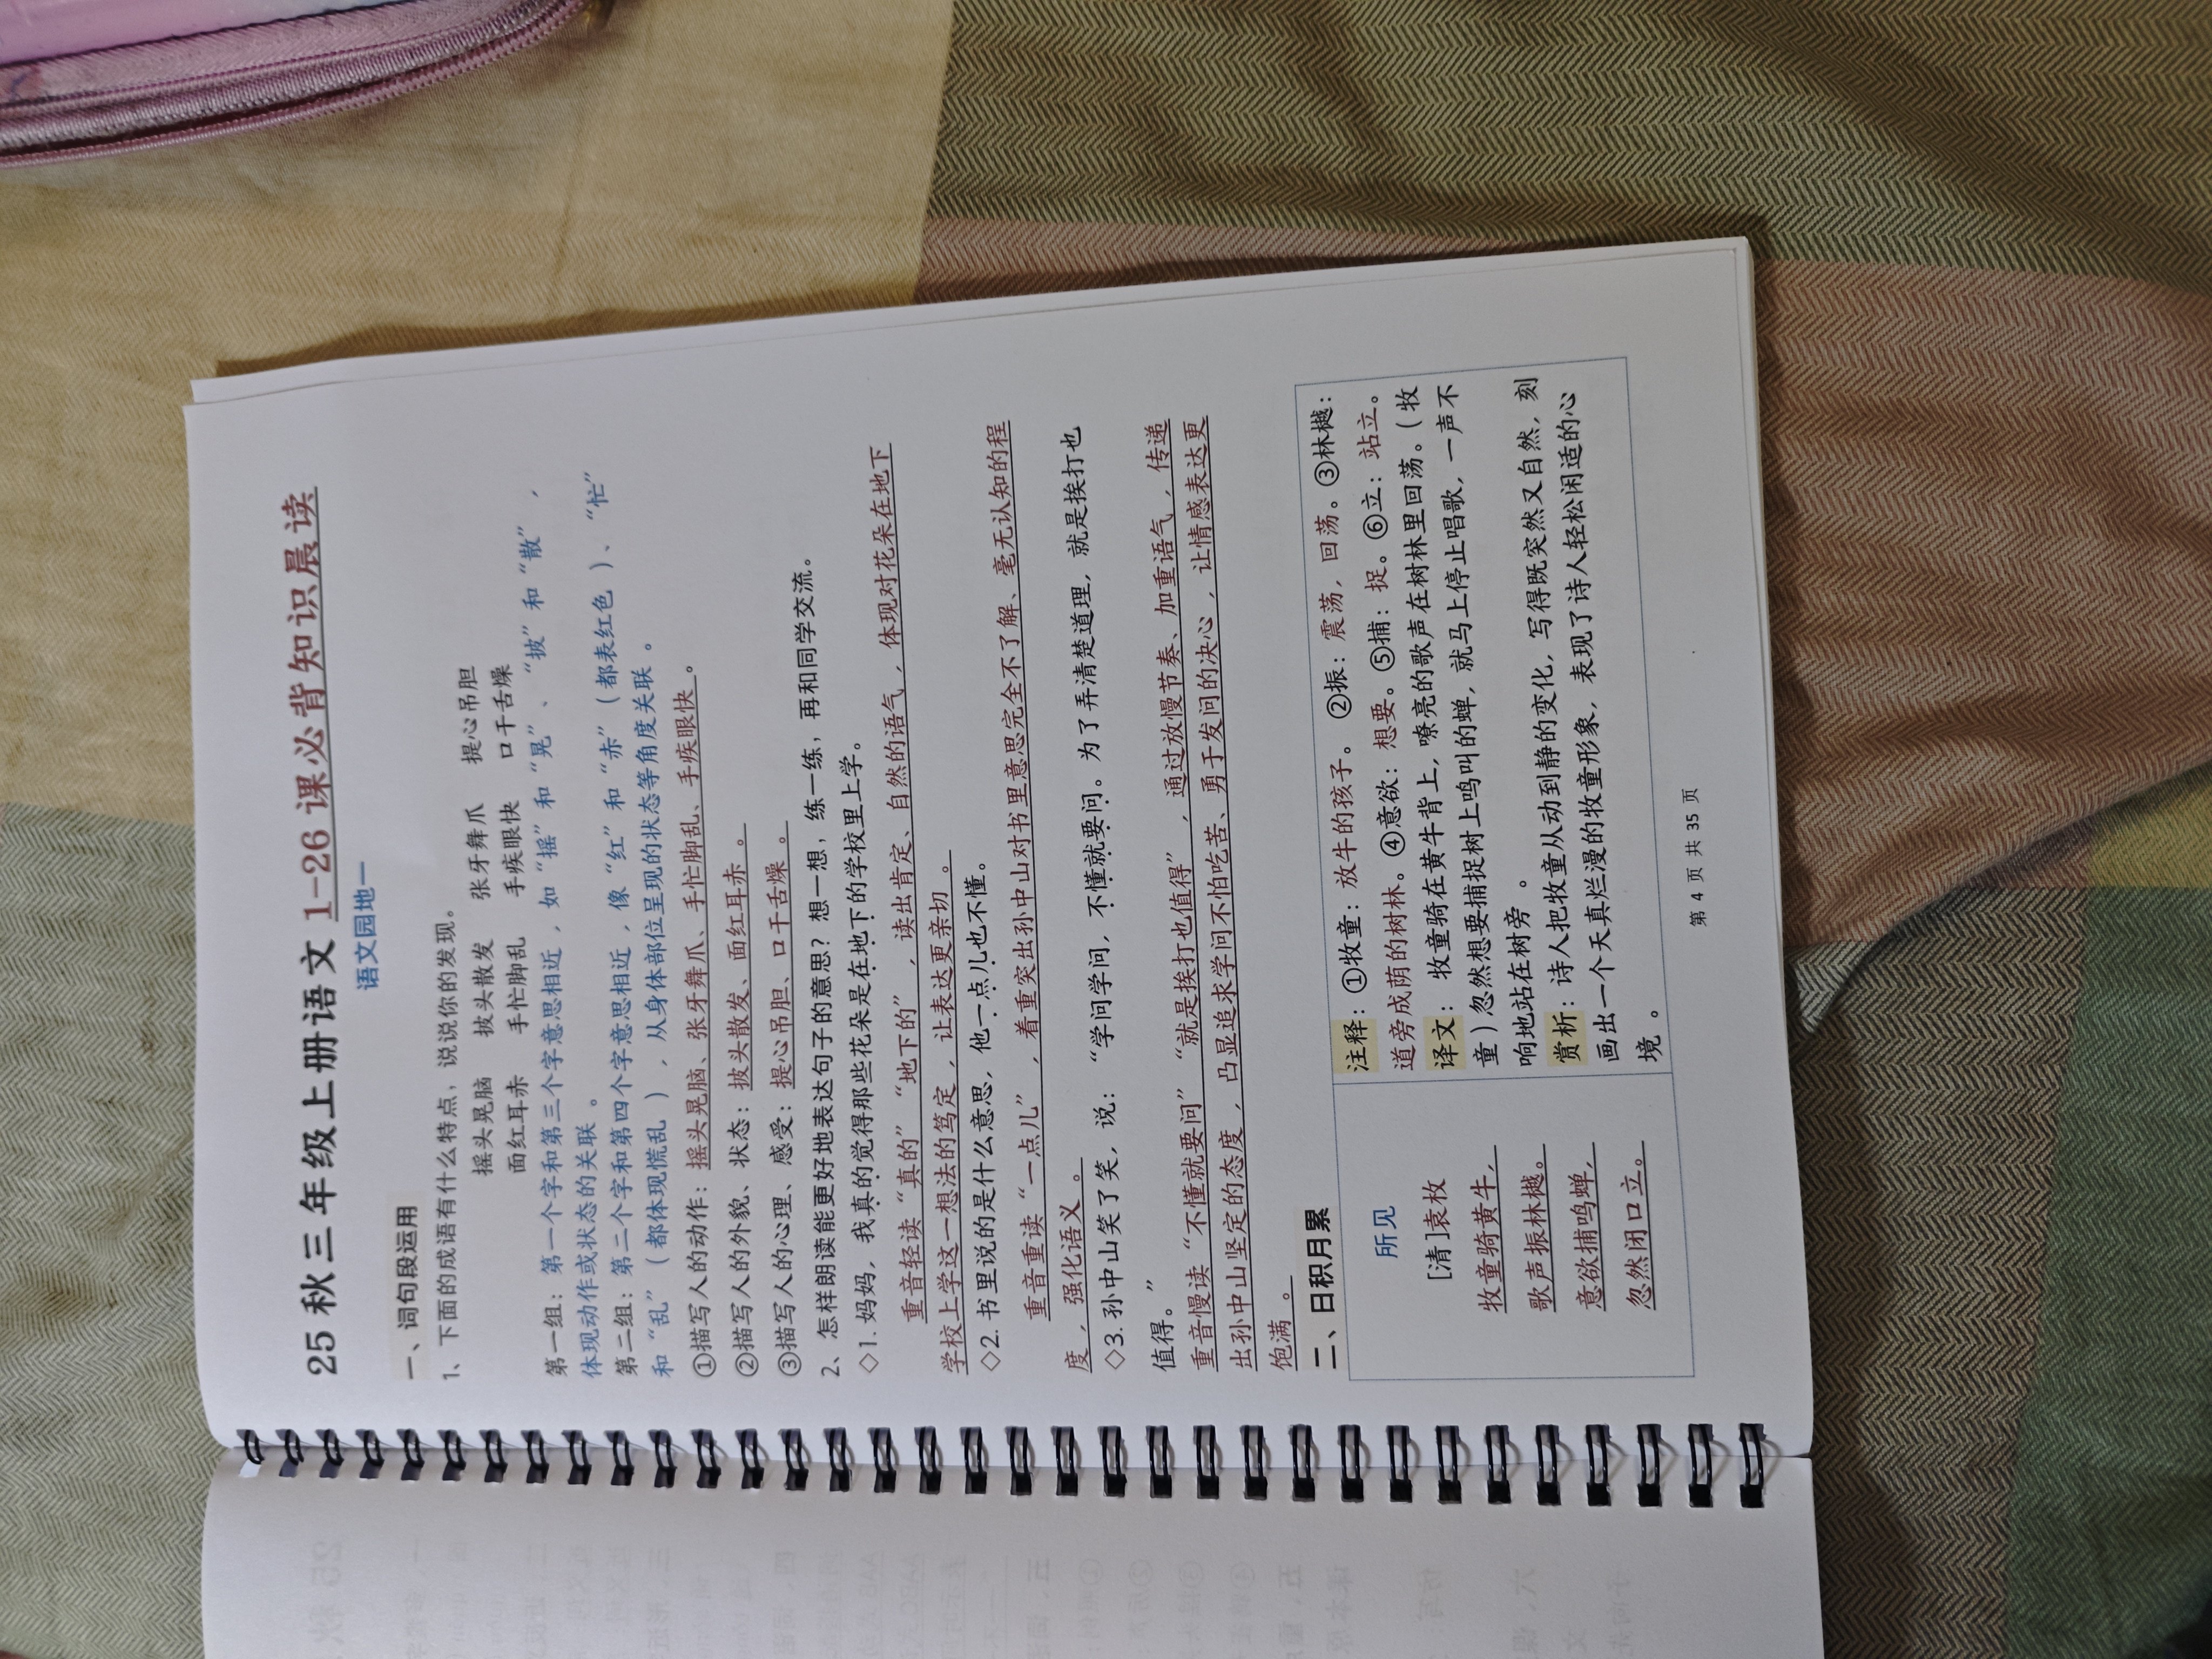 25 秋三年级上册语文 1-26 课必背知识晨读
语文园地一
一、词句段运用
1、下面的成语有什么特点，说说你的发现。
摇头晃脑 披头散发 张牙舞爪 提心吊胆
面红耳赤 手忙脚乱 手疾眼快 口干舌燥
第一组：第一个字和第三个字意思相近，如“摇”和“晃”、“披”和“散”，
体现动作或状态的关联。
第二组：第二个字和第四个字意思相近，像“红”和“赤”（都表红色）、“忙”
和“乱”（都体现慌乱），从身体部位呈现的状态等角度关联。
①描写人的动作：摇头晃脑、张牙舞爪、手忙脚乱、手疾眼快。
②描写人的外貌、状态：披头散发、面红耳赤。
③描写人的心理、感受：提心吊胆、口干舌燥。
2、怎样朗读能更好地表达句子的意思？想一想，练一练，再和同学交流。
◇1. 妈妈，我真的觉得那些花朵是在地下的学校里上学。
重音轻读“真的”“地下的”，读出肯定、自然的语气，体现对花朵在地下
学校上学这一想法的笃定，让表达更亲切。
◇2. 书里说的是什么意思，他一点儿也不懂。
重音重读“一点儿”，着重突出孙中山对书里意思完全不了解、毫无认知的程
度，强化语义。
◇3. 孙中山笑了笑，说：“学问学问，不懂就要问。为了弄清楚道理，就是挨打也
值得。”
重音慢读“不懂就要问”“就是挨打也值得”，通过放慢节奏、加重语气，传递
出孙中山坚定的态度，凸显追求学问不怕吃苦、勇于发问的决心，让情感表达更
饱满。
二、日积月累
所见
[清]袁枚
牧童骑黄牛，
歌声振林樾。
意欲捕鸣蝉，
忽然闭口立。
注释：①牧童：放牛的孩子。②振：震荡，回荡。③林樾：
道旁成荫的树林。④意欲：想要。⑤捕：捉。⑥立：站立。
译文：牧童骑在黄牛背上，嘹亮的歌声在树林里回荡。（牧
童）忽然想要捕捉树上鸣叫的蝉，就马上停止唱歌，一声不
响地站在树旁。
赏析：诗人把牧童从动到静的变化，写得既突然又自然，刻
画出一个天真烂漫的牧童形象，表现了诗人轻松闲适的心
境。
第 4 页 共 35 页